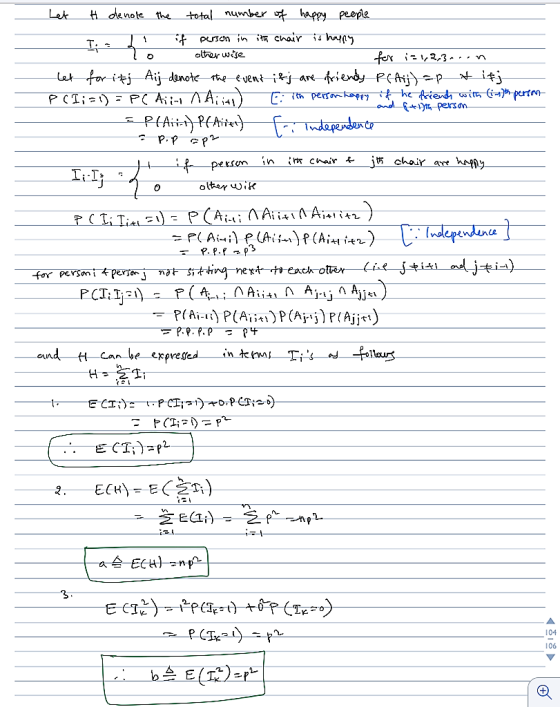 Let H denote the total number of happy people
I_i = { 1 if person in ith chair is happy
0 otherwise for i=1,2,3....n
Let for i≠j A_ij denote the event i&j are friends P(A_ij)=p ∀ i≠j
P(I_i=1) = P(A_ii-1 ∩ A_ii+1) [∵ ith person happy if he friends with (i-1)th person and (i+1)th person
= P(A_ii-1) P(A_ii+1) [∵ Independence
= p.p = p²
I_i.I_j = { 1 if person in ith chair & jth chair are happy
0 otherwise
P(I_i I_i+1 = 1) = P(A_i-1i ∩ A_ii+1 ∩ A_i+1i+2)
= P(A_i-1i) P(A_ii+1) P(A_i+1i+2) [∵ Independence]
= p.p.p = p³
for person i & person j not sitting next to each other (i.e j≠i+1 and j≠i-1)
P(I_i I_j=1) = P(A_i-1i ∩ A_ii+1 ∩ A_j-1j ∩ A_jj+1)
= P(A_i-1i) P(A_ii+1) P(A_j-1j) P(A_jj+1)
= p.p.p.p = p4
and H can be expressed in terms I_i's as follows
H = Σ_{i=1}^{n} I_i
1. E(I_i) = 1.P(I_i=1) + 0.P(I_i=0)
= P(I_i=1) = p²
∴ E(I_i) = p²
2. E(H) = E(Σ_{i=1}^{n} I_i)
= Σ_{i=1}^{n} E(I_i) = Σ_{i=1}^{n} p² = np²
a ≜ E(H) = np²
3.
E(I_k²) = 1²P(I_k=1) + 0²P(I_k=0)
= P(I_k=1) = p²
∴ b ≜ E(I_k²) = p²
104
106